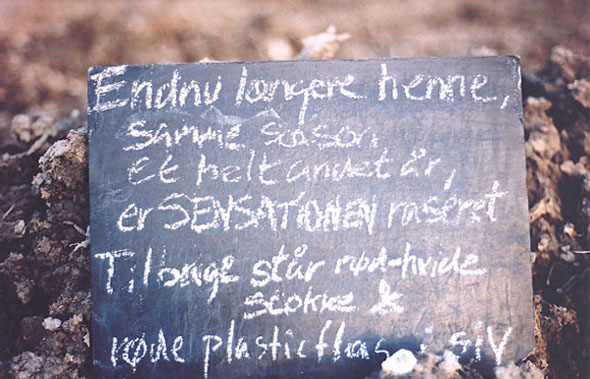 Endnu længere henne,
samme sæson,
et helt andet år,
er SENSATIONEN raseret
Tilbage står rød-hvide
stokke &
røde plasticflas i siv